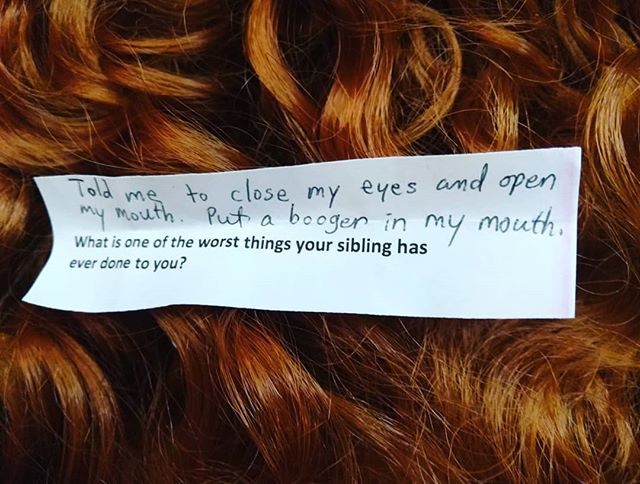 Told me to close my eyes and open
my mouth. Put a booger in my mouth.
What is one of the worst things your sibling has
ever done to you?